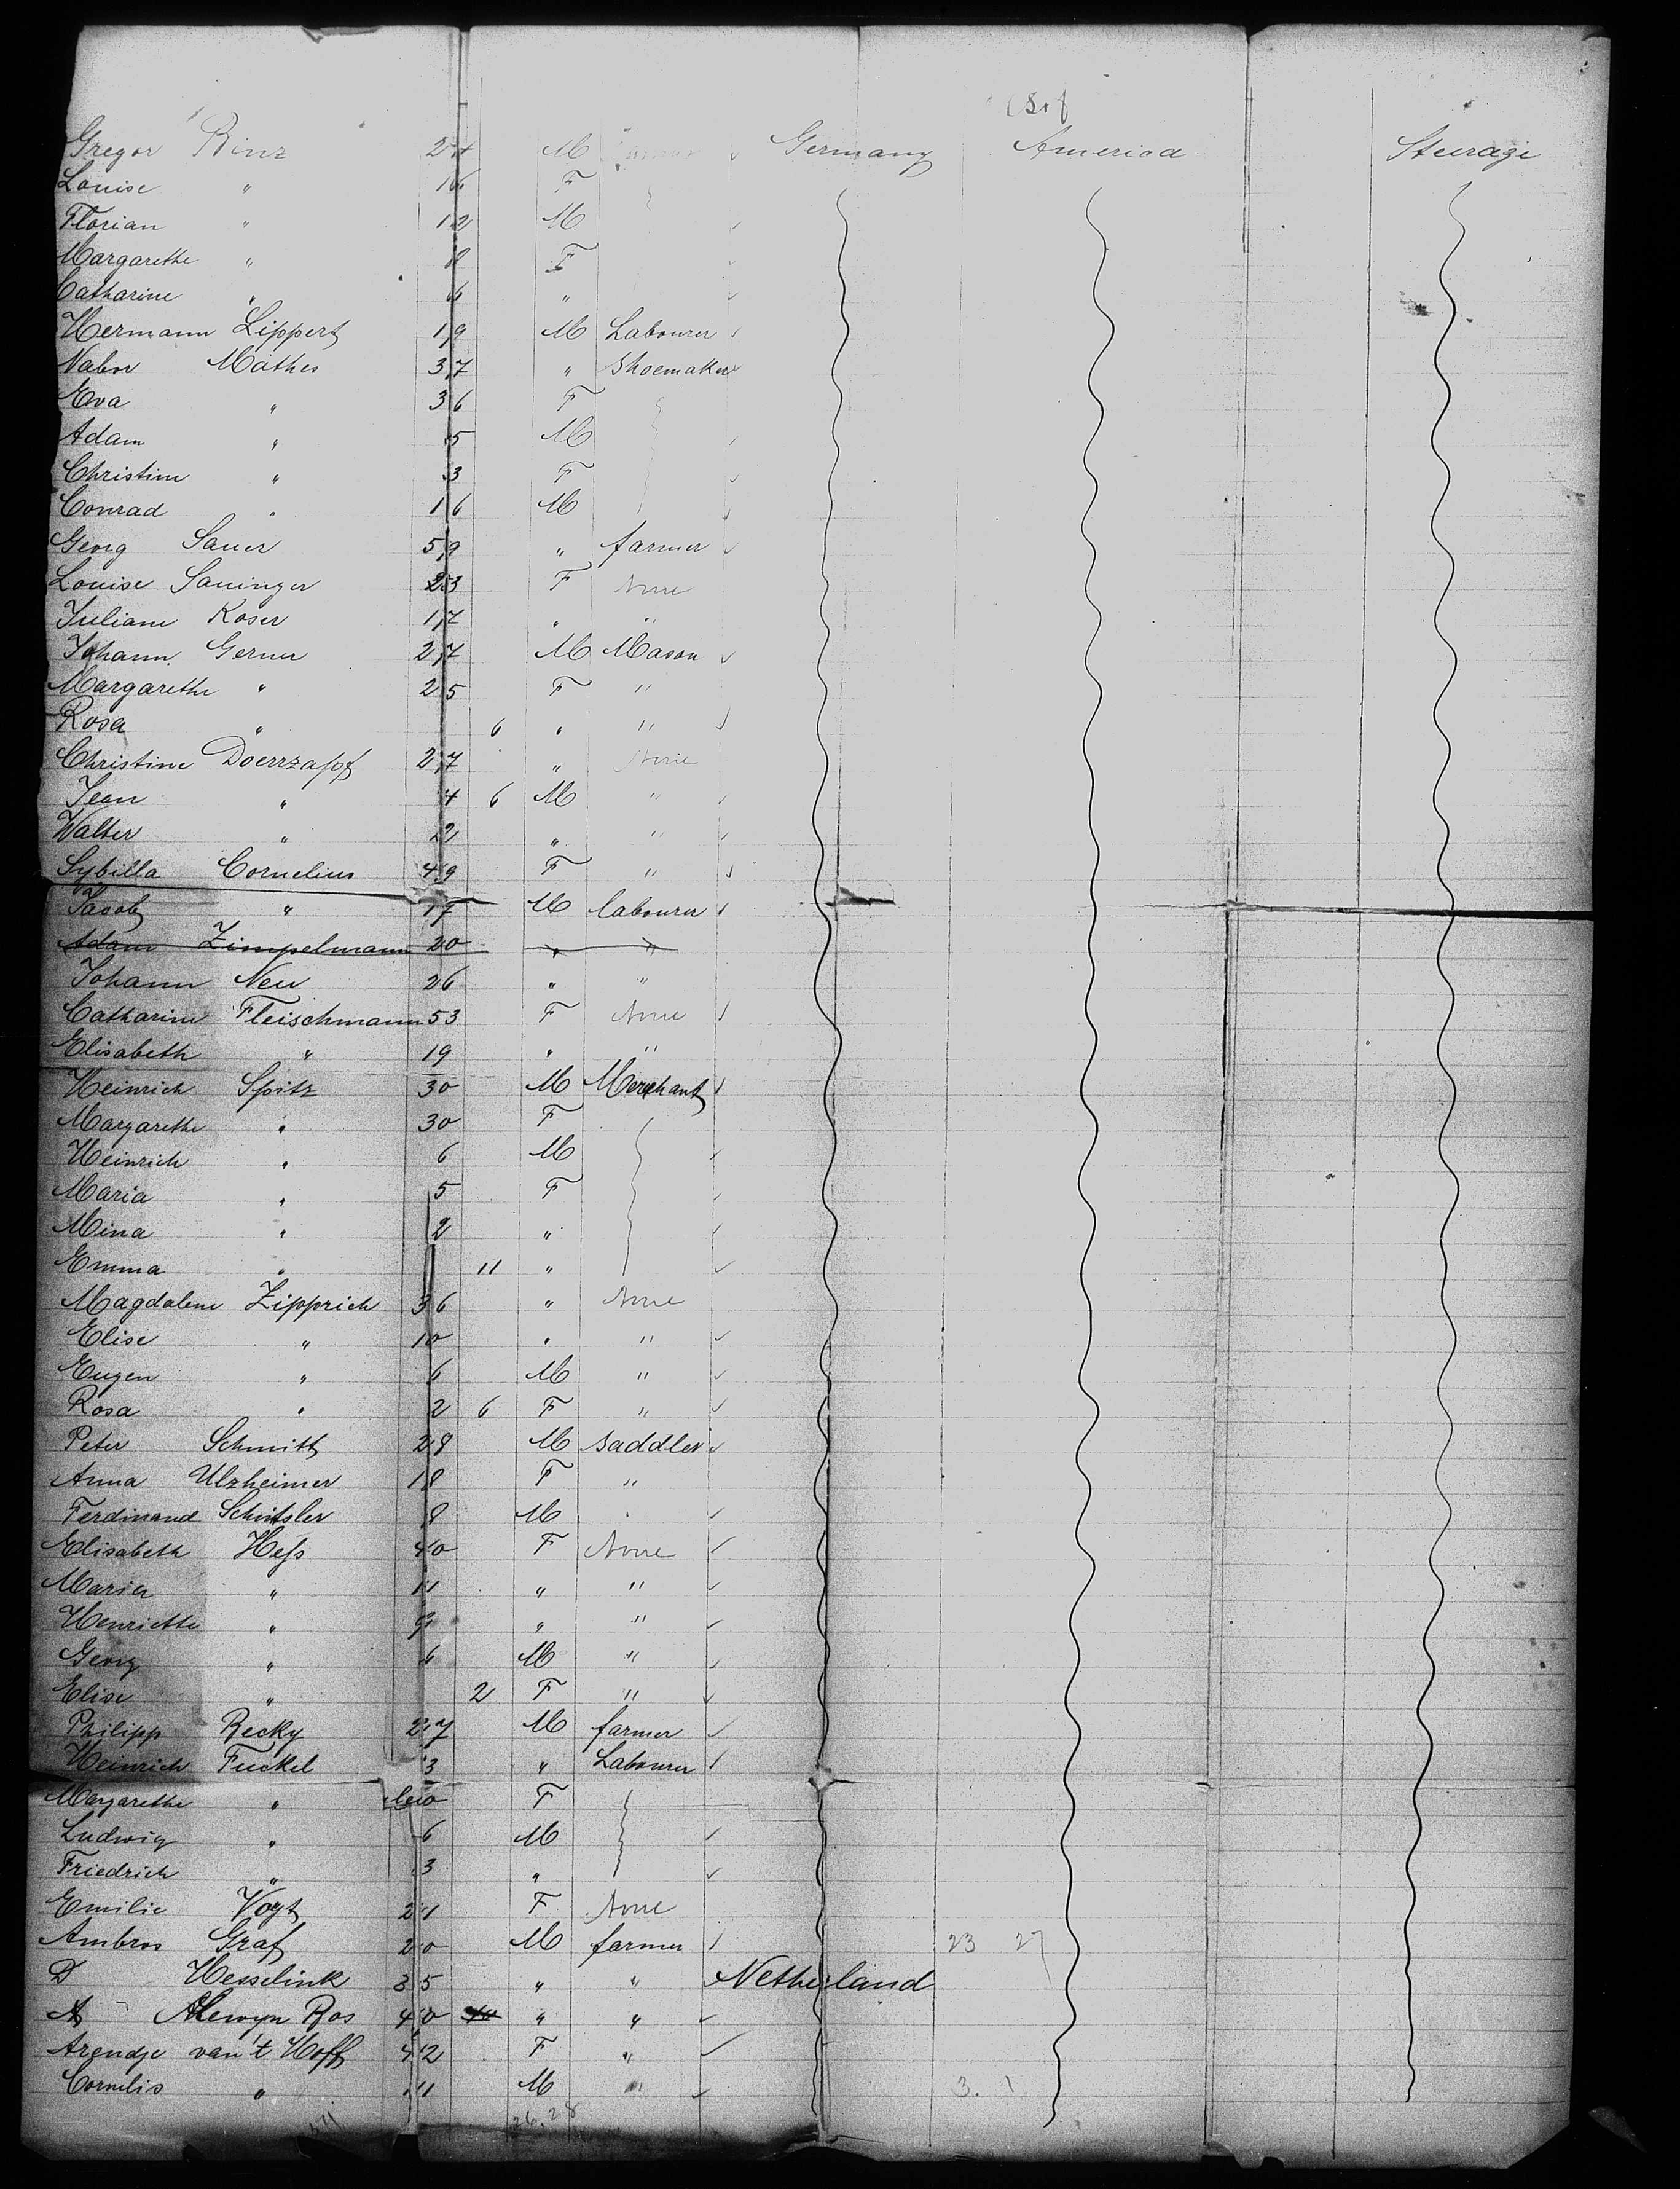 Gregor Rinz 24 M Germany America Steerage
Louise " 16 F
Florian " 12 M
Margarethe " 8 F
Catharine " 6 "
Hermann Lippert 19 M Labourer
Nabor Mathes 37 " Shoemaker
Eva " 36 F
Adam " 5 M
Christine " 3 F
Conrad " 16 M
Georg Sauer 59 " farmer
Louise Sauinger 23 F None
Juliane Koser 17 " "
Johann Gerner 27 M Mason
Margarethe " 25 F "
Rosa " 6 " "
Christine Doerrzapf 27 " None
Jean " 4 6 M "
Walter " 2 " "
Sybilla Cornelius 49 F "
Jacob " 17 M labourer
Adam Zimpelmann 20 " "
Johann Neu 26 " "
Catharine Fleischmann 53 F None
Elisabeth " 19 " "
Heinrich Spitz 30 M Merchant
Margarethe " 30 F
Heinrich " 6 M
Maria " 5 F
Mina " 2 "
Emma " 11 "
Magdalene Zipprich 36 " None
Elise " 10 " "
Eugen " 6 M "
Rosa " 2 6 F "
Peter Schmitt 28 M Saddler
Anna Ulzheimer 18 F "
Ferdinand Schitsler 8 M
Elisabeth Heß 40 F None
Maria " 11 " "
Henriette " 9 " "
Georg " 6 M "
Elise " 2 F "
Philipp Recky 27 M farmer
Heinrich Fuckel 3 " Labourer
Margarethe " F
Ludwig " 6 M
Friedrich " 3 "
Emilie Vogt 21 F None
Ambros Graf 20 M farmer 23 27
D Hesselink 35 " " Netherland
A Alewyn Ros 40 " "
Arendje van't Hoff 42 F "
Cornelis " 11 M " 3. 1
26.28